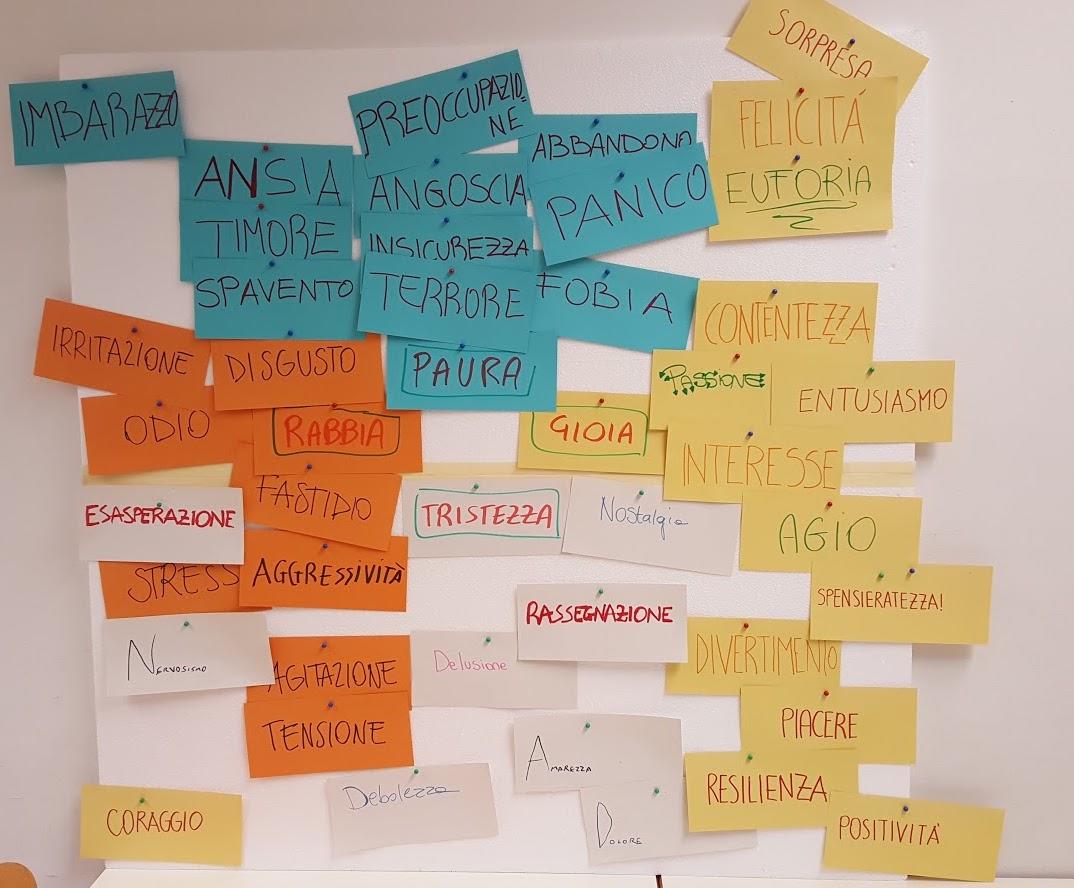 SORPRESA
IMBARAZZO
PREOCCUPAZIO
NE
FELICITÁ
ABBANDONO
ANSIA
ANGOSCIA
PANICO
EUFORIA
TIMORE
INSICUREZZA
SPAVENTO
TERRORE
FOBIA
CONTENTEZZA
IRRITAZIONE
DISGUSTO
PAURA
PASSIONE
ENTUSIASMO
ODIO
RABBIA
GIOIA
INTERESSE
FASTIDIO
ESASPERAZIONE
TRISTEZZA
Nostalgia
AGIO
STRESS
AGGRESSIVITÀ
SPENSIERATEZZA!
RASSEGNAZIONE
NERVOSISMO
AGITAZIONE
Delusione
DIVERTIMENTO
TENSIONE
PIACERE
AMAREZZA
RESILIENZA
CORAGGIO
Debolezza
DOLORE
POSITIVITÀ